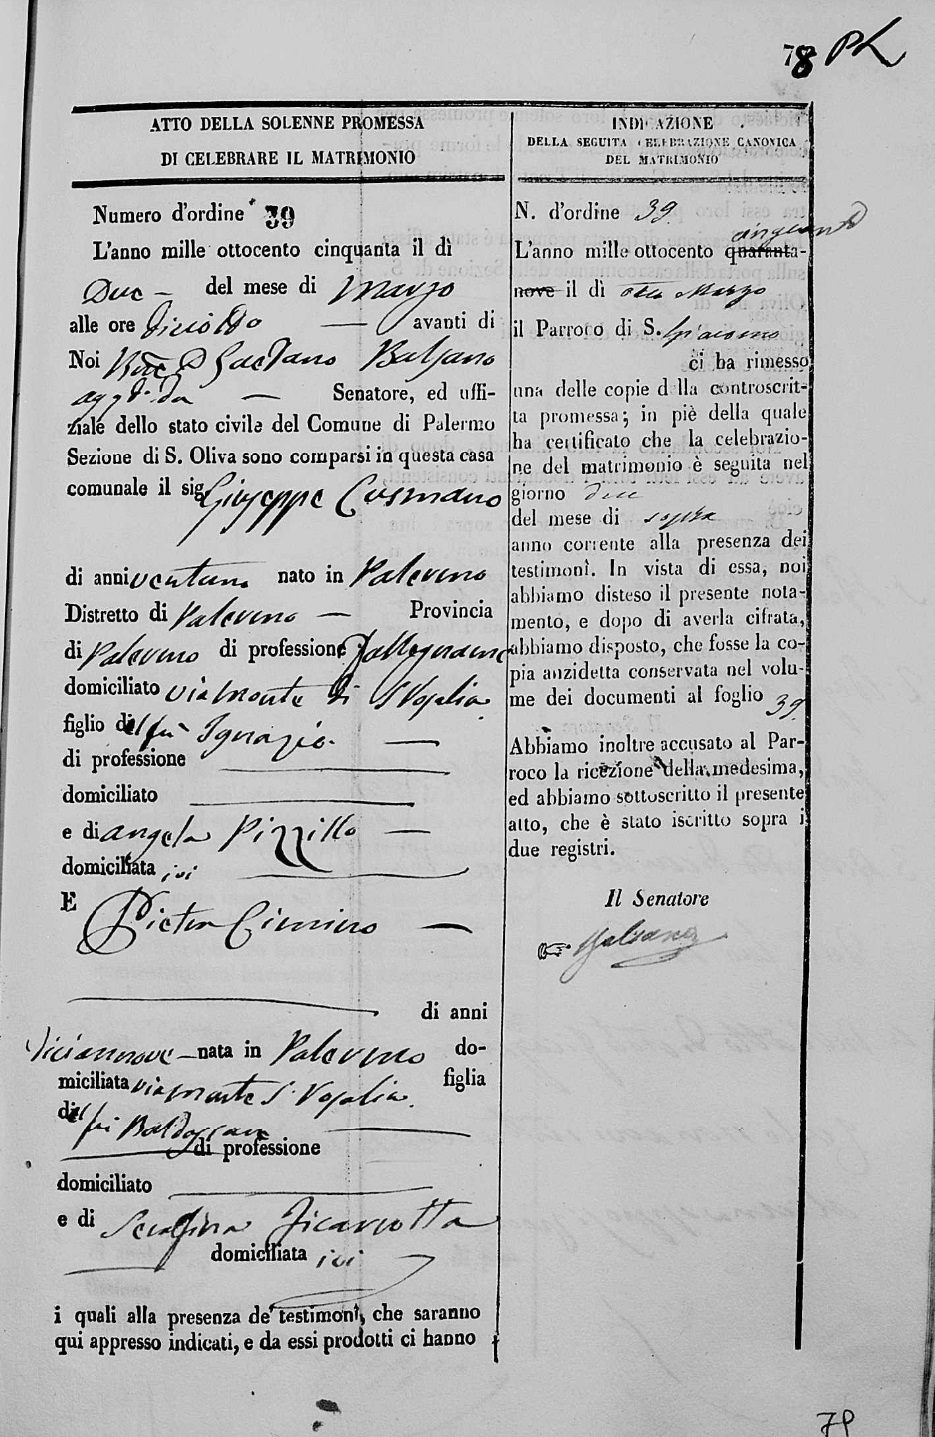 78 PL
ATTO DELLA SOLENNE PROMESSA
DI CELEBRARE IL MATRIMONIO
Numero d'ordine 39
L'anno mille ottocento cinquanta il dì
Due – del mese di Marzo
alle ore diciotto — avanti di
Noi D Gaetano Balsano
agg.to da — Senatore, ed uffi-
ziale dello stato civile del Comune di Palermo
Sezione di S. Oliva sono comparsi in questa casa
comunale il sig Giuseppe Cusmano
di anni ventuno nato in Palermo
Distretto di Palermo — Provincia
di Palermo di professione Fallegname
domiciliato via Monte di S Rosalia
figlio del fu Ignazio —
di professione
domiciliato
e di Angela Pizzillo —
domiciliata ivi
E Pietra Cimino —
di anni
diciannove – nata in Palermo do-
miciliata via Monte S Rosalia figlia
del fu Baldassare
di professione
domiciliato
e di Serafina Ficarrotta
domiciliata ivi
i quali alla presenza de' testimonî, che saranno
qui appresso indicati, e da essi prodotti ci hanno
INDICAZIONE
DELLA SEGUITA CELEBRAZIONE CANONICA
DEL MATRIMONIO
N. d'ordine 39
cinquanta
L'anno mille ottocento quaranta-
nove il dì otto Marzo
il Parroco di S. Giacomo
ci ha rimesso
una delle copie della controscrit-
ta promessa; in piè della quale
ha certificato che la celebrazio-
ne del matrimonio è seguita nel
giorno due
del mese di sopra
anno corrente alla presenza dei
testimonî. In vista di essa, noi
abbiamo disteso il presente nota-
mento, e dopo di averla cifrata,
abbiamo disposto, che fosse la co-
pia anzidetta conservata nel volu-
me dei documenti al foglio 39
Abbiamo inoltre accusato al Par-
roco la ricezione della medesima,
ed abbiamo sottoscritto il presente
atto, che è stato iscritto sopra i
due registri.
Il Senatore
Balsano
79